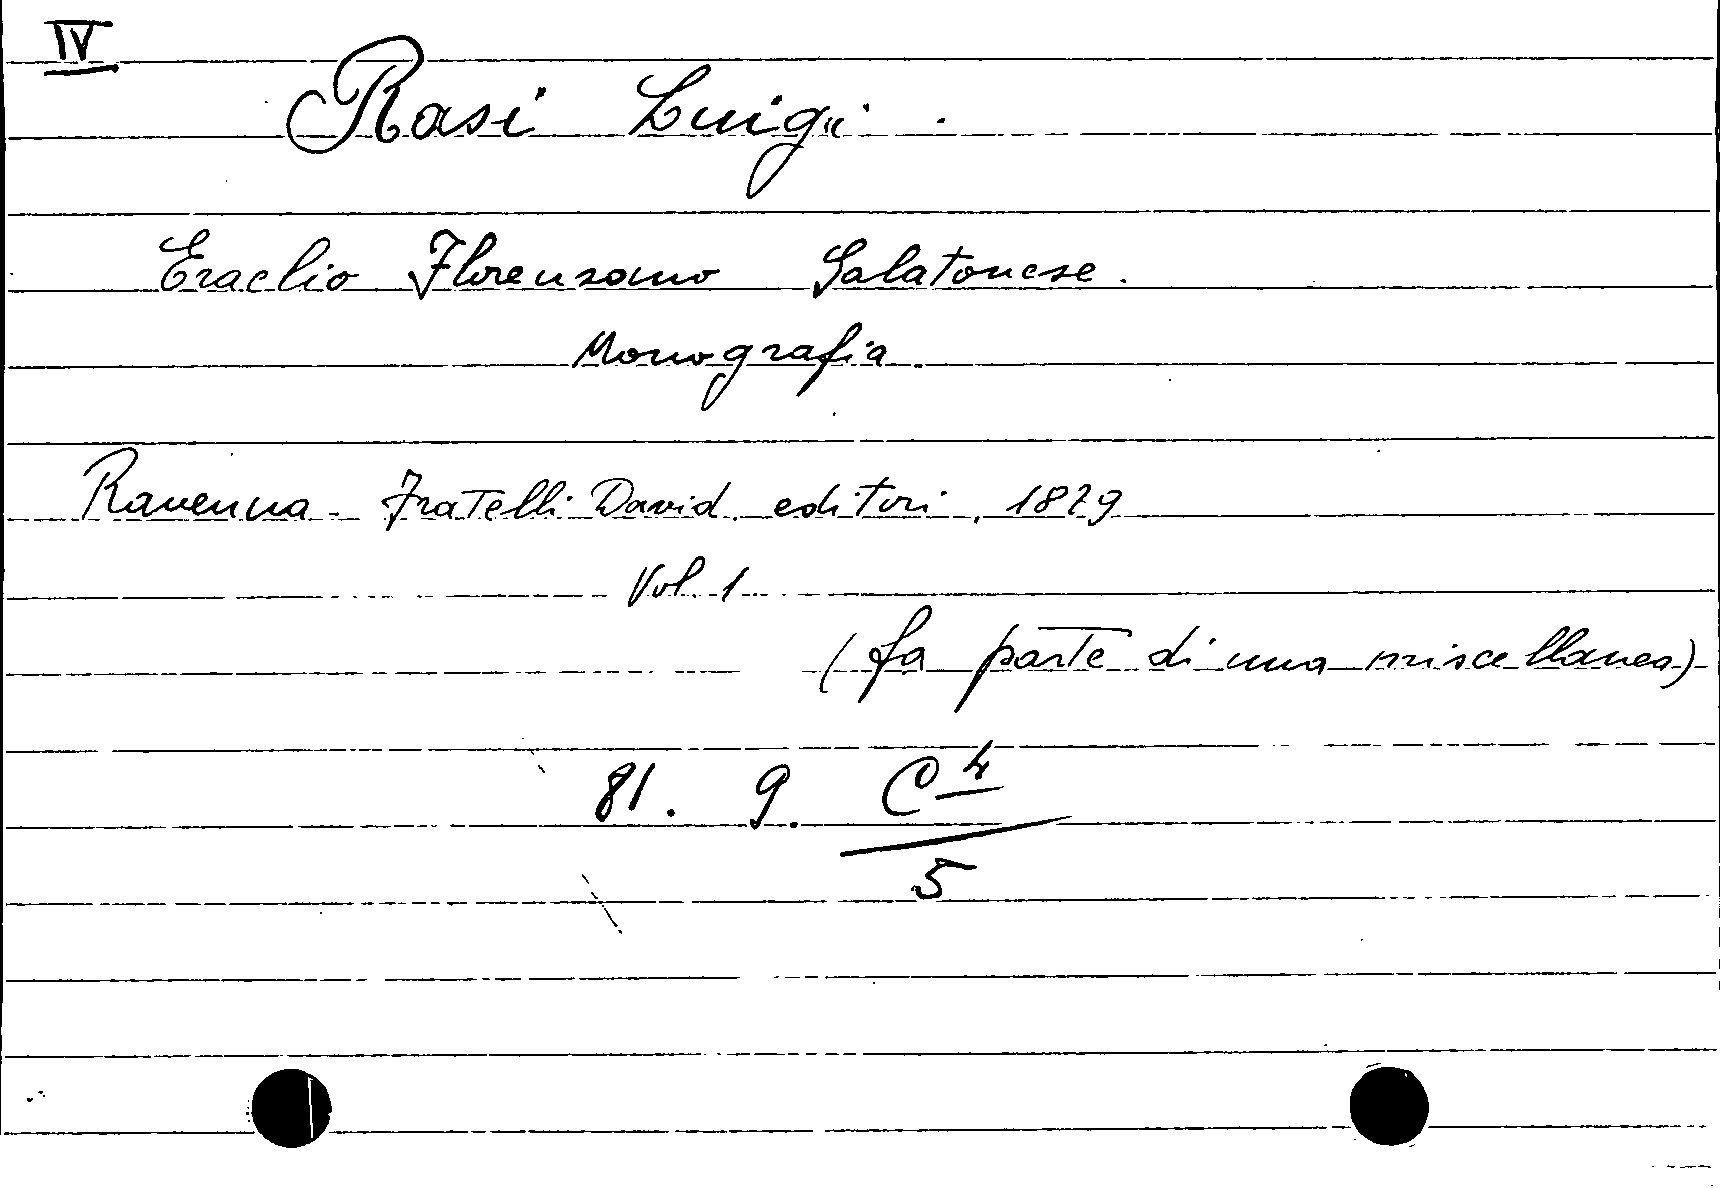 IV
Rasi Luigi.
Eraclio Florenzano Galatonese.
Monografia.
Ravenna - Fratelli David editori, 1879
Vol. 1
(fa parte di una miscellanea)
81. 9. C4
5